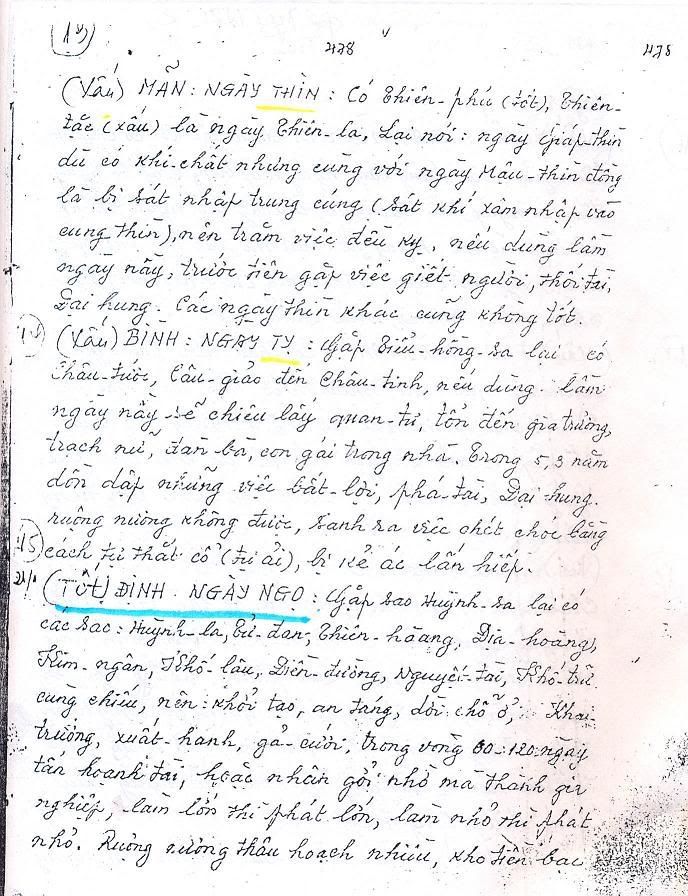 13
478 478
(Xấu) MÃN : NGÀY THÌN : Có Thiên-phú (tốt), Thiên-
tặc (xấu) là ngày Thiên-la, Lại nói : ngày Giáp-thìn
dù có khí-chất nhưng cùng với ngày Mậu-thìn đồng
là bị sát nhập trung cúng (sát khí xâm nhập vào
cung thìn), nên trăm việc đều kỵ, nếu dùng lầm
ngày nầy, trước tiên gặp việc giết người, thối tài,
Đại hung. Các ngày thìn khác cũng không tốt.
(Xấu) BÌNH : NGÀY TỴ : Gặp Tiểu-hồng-sa lại có
Châu-tước, Câu-giảo đến Châu-tinh, nếu dùng lầm
ngày nầy sẽ chiêu lấy quan-tư, tổn đến gia trưởng,
trạch nữ, đàn bà, con gái trong nhà. Trong 5, 3 năm
dồn dập những việc bất-lợi, phá-tài, Đại hung.
ruộng nương không được, sanh ra việc chết chóc bằng
15
cách tự thắt cổ (tự ải), bị kẻ ác lấn hiếp.
(TỐT) ĐỊNH . NGÀY NGỌ : Gặp sao Huỳnh-sa lại có
các sao : Huỳnh-la, Tử-đàn, Thiên-hoàng, Địa-hoàng,
Kim-ngân, Khố-lâu, Điền-đường, Nguyệt-tài, Khố-trữ
cùng chiếu, nên : khởi tạo, an táng, dời chỗ ở, Khai
trương, xuất-hành, gả-cưới, trong vòng 60-120 ngày
tấn hoạnh tài, hoặc nhân gởi nhờ mà thành gia
nghiệp, làm lớn thì phát lớn, làm nhỏ thì phát
nhỏ. Ruộng nương thâu hoạch nhiều, kho tiền bạc